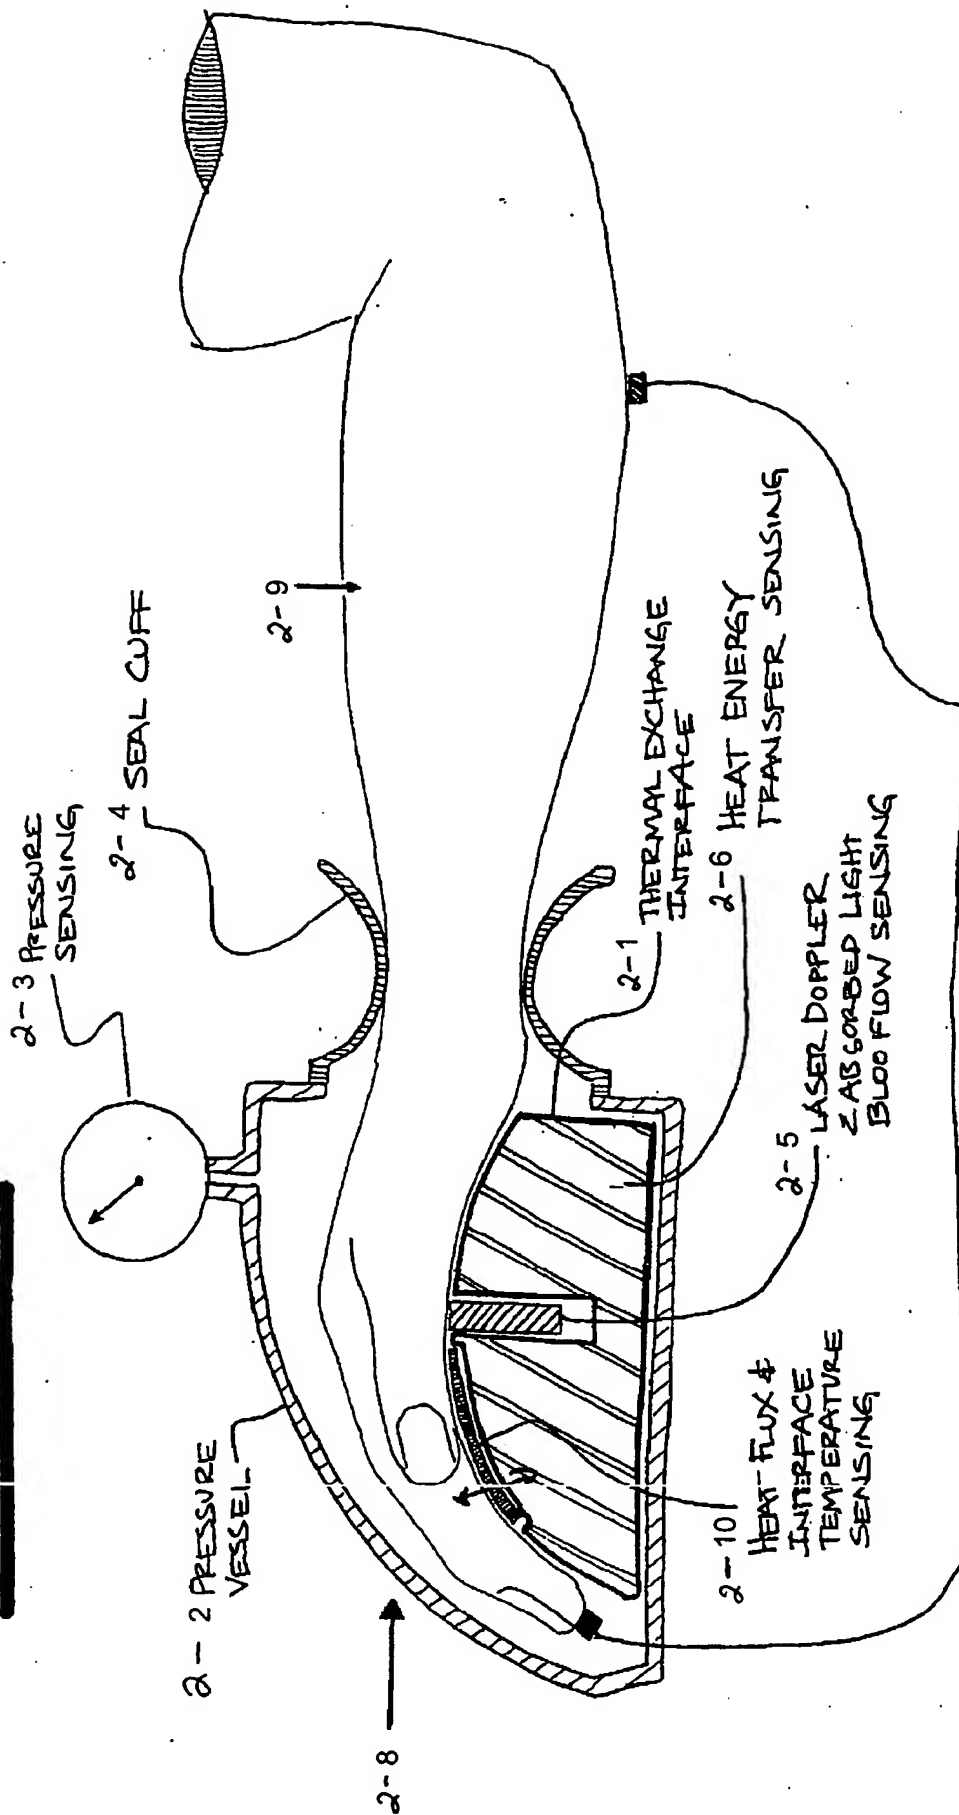 2-3 PRESSURE
SENSING
2-4 SEAL CUFF
2-9
2-2 PRESSURE
VESSEL
2-8
2-1 THERMAL EXCHANGE
INTERFACE
2-6 HEAT ENERGY
TRANSFER SENSING
2-5 LASER DOPPLER
& ABSORBED LIGHT
BLOO FLOW SENSING
2-10
HEAT FLUX &
INTERFACE
TEMPERATURE
SENSING